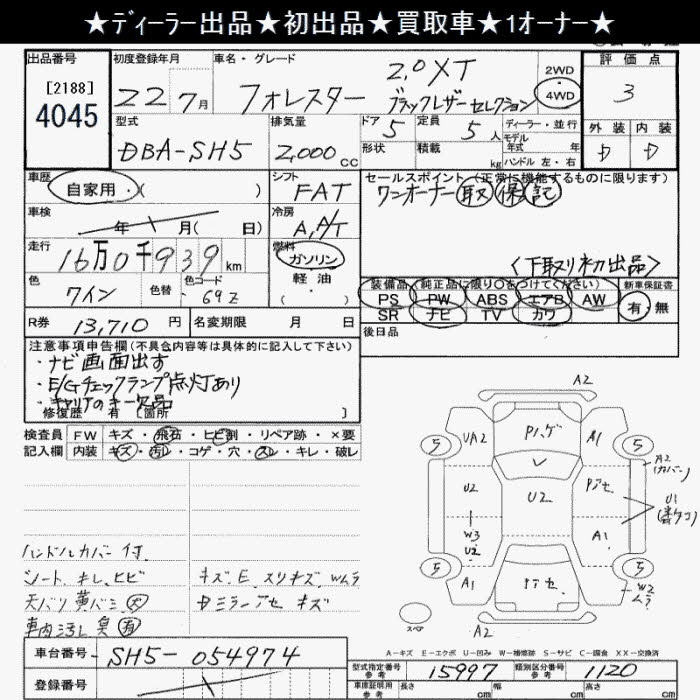 ★ﾃﾞｨｰﾗｰ出品★初出品★買取車★1ｵｰﾅｰ★
出品番号
[2188]
4045
初度登録年月
22年7月
車名・グレード
フォレスター
2,0XT
ブラックレザーセレクション
2WD
・
4WD
評価点
3
外装 内装
D D
型式
DBA-SH5
排気量
2,000cc
ドア 5
定員 5人
形状
積載 kg
ディーラー・並行
モデル年式 年
ハンドル 左・右
車歴
自家用・( )
シフト
FAT
セールスポイント(正常に機能するものに限ります)
ワンオーナー 取 保 記
<下取り初出品>
車検
年 月( 日)
冷房
A,A/T
走行
16万0千939km
燃料
ガソリン
・
軽油
・
( )
色
ワイン
色替
色コード
69Z
装備品(純正品に限り○をつけてください)
PS PW ABS エアB AW
SR ナビ TV カワ
新車保証書
有・無
R券 13,710円
名変期限 月 日
後日品
注意事項申告欄(不具合内容等は具体的に記入して下さい)
・ナビ画面出ず
・E/Gチェックランプ点灯あり
・キャリアのキー欠品
修復歴 有〔箇所 〕
検査員
記入欄
FW キズ・飛石・ヒビ割・リペア跡・×要
内装 キズ・汚レ・コゲ・穴・スレ・キレ・破レ
ハンドルカバー付.
シート.キレ.ヒビ
天バリ黄バミ 大
車内汚レ 臭 有
キズ.E.スリキズ.Wムラ
Dミラーアセ キズ
A2
5 UA2 Pハゲ A1 5
A2
(カバー)
U2 U2 Pアセ
U1
W3
U2
A1
5 A1 Pアセ 5
W2
ムラ
スペア
A2
A-キズ E-エクボ U-凹み W-補修跡 S-サビ C-腐食 XX-交換済
車台番号 SH5-054974
登録番号
型式指定番号
参考
15997
類別区分番号
参考
1120
車庫証明用
参考
長さ cm
幅 cm
高さ cm